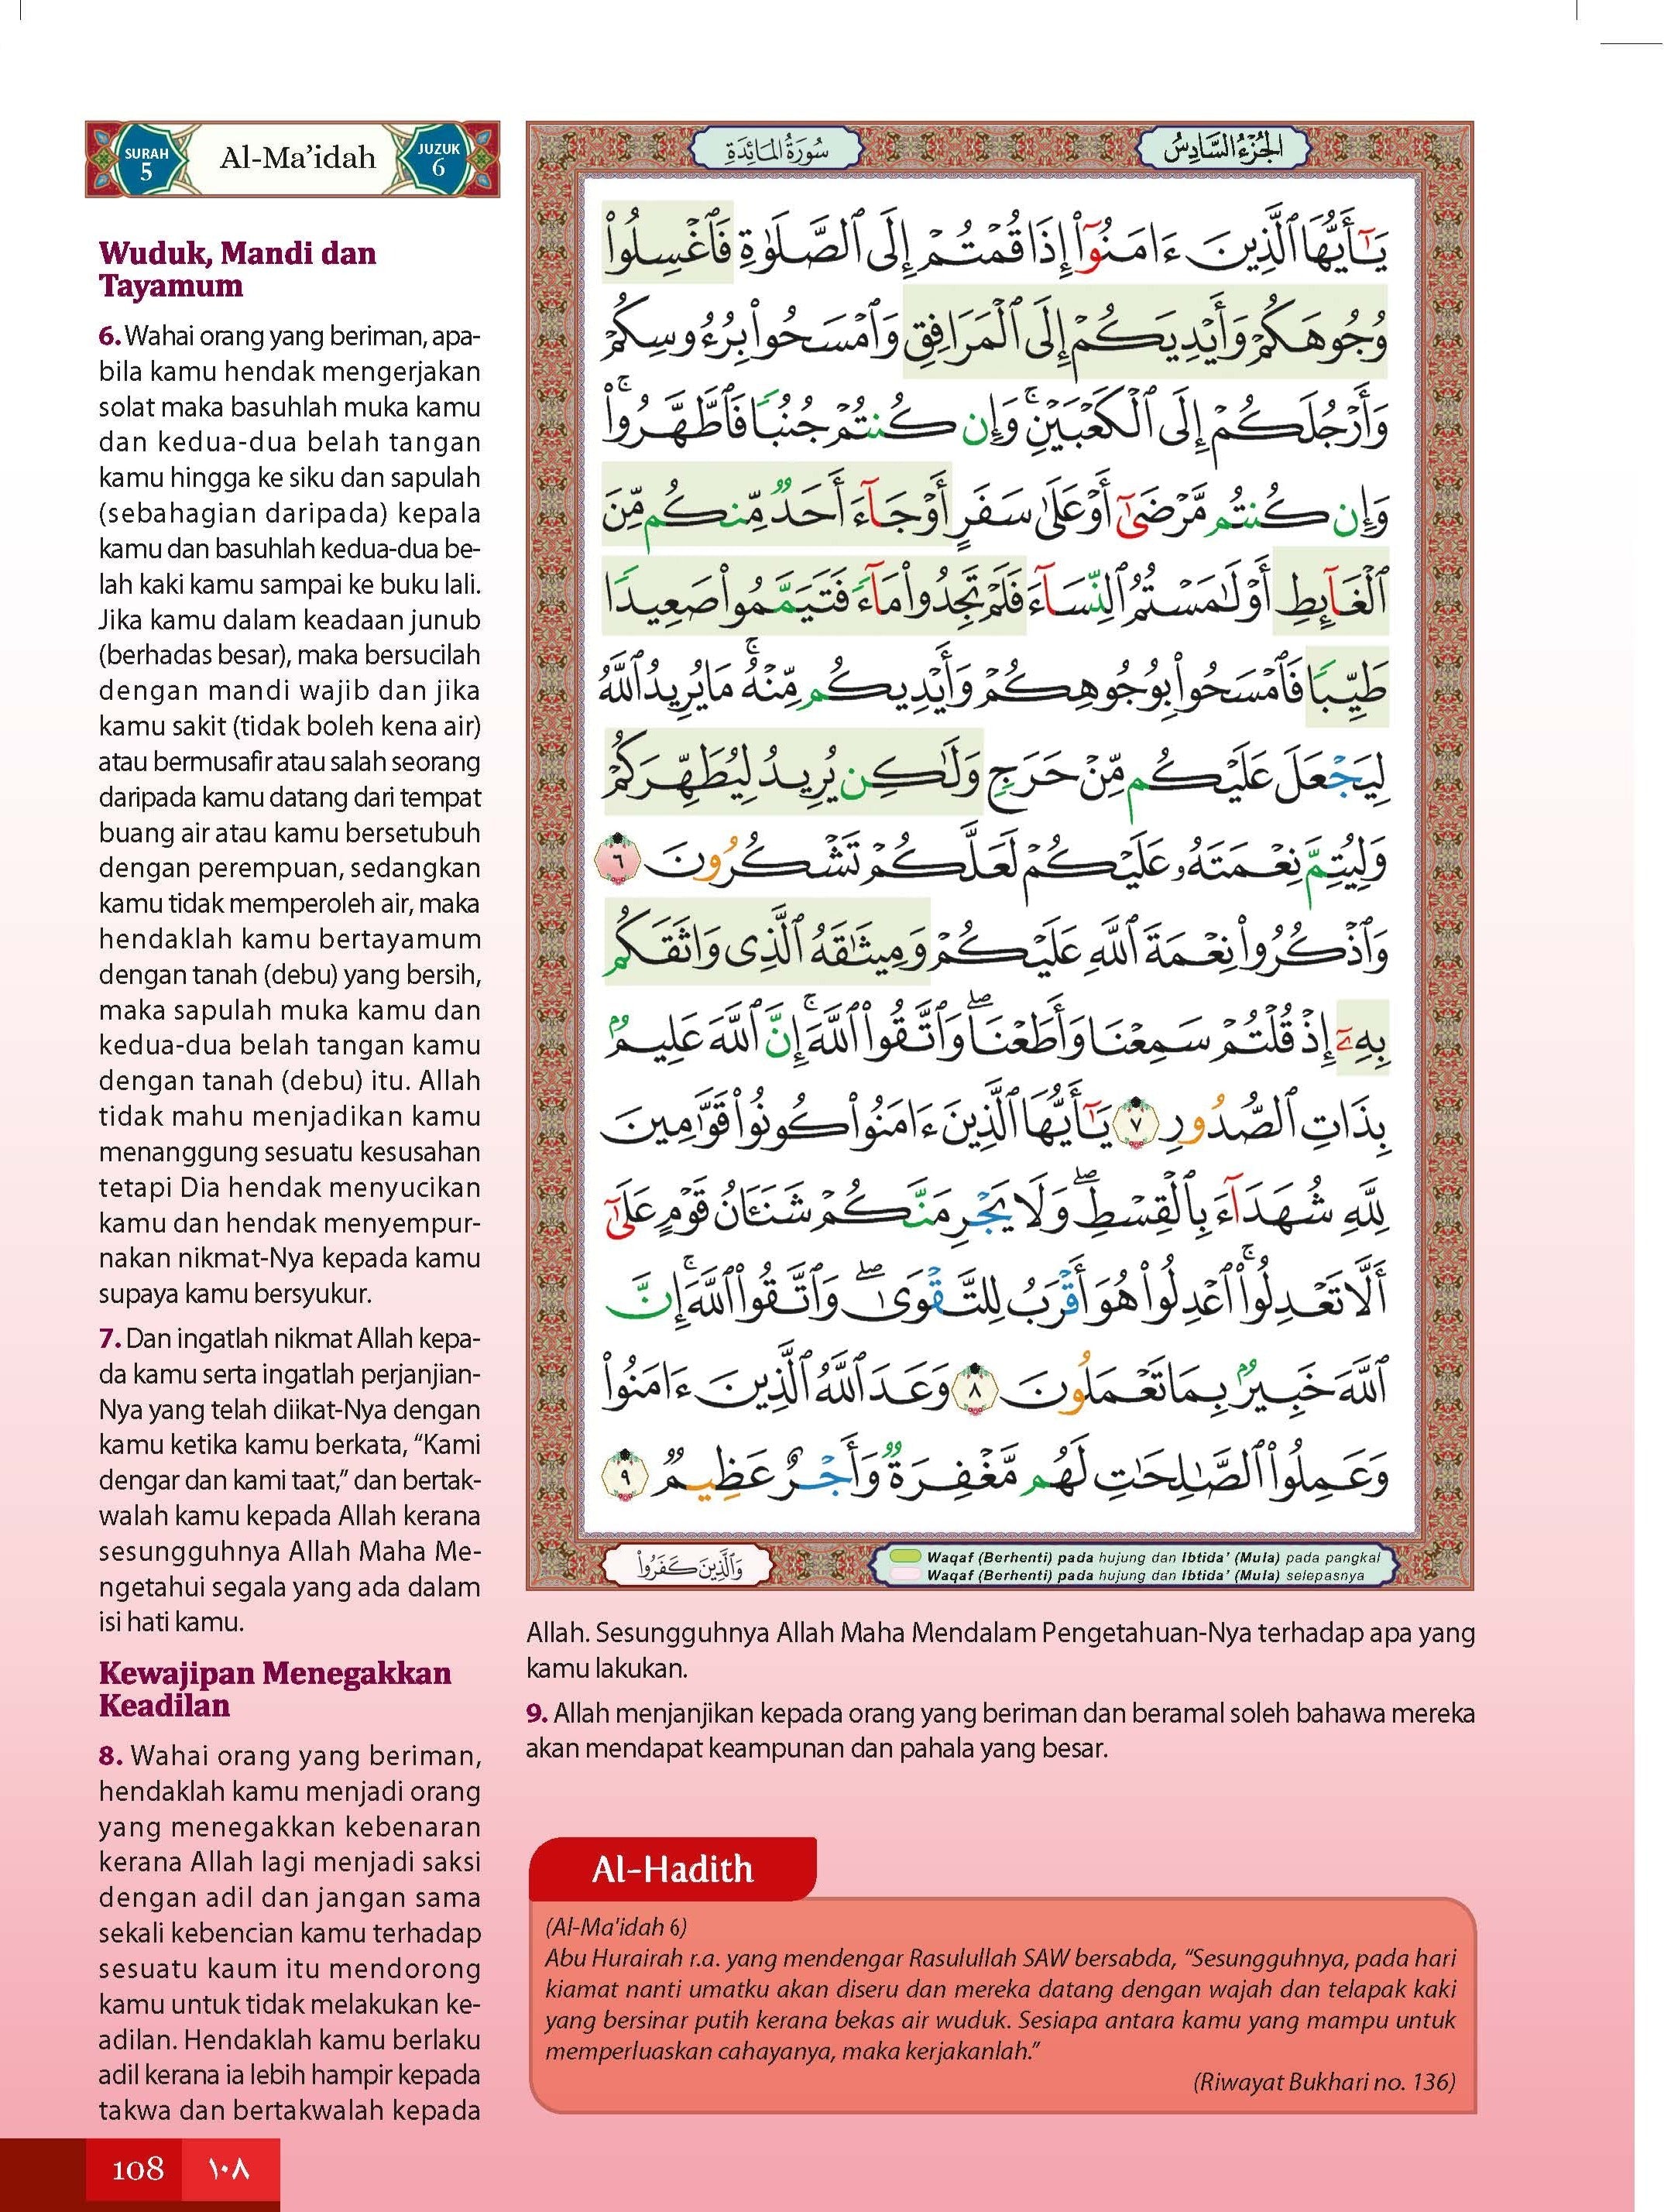 SURAH
5
Al-Ma’idah
JUZUK
6
Wuduk, Mandi dan
Tayamum
6. Wahai orang yang beriman, apa-
bila kamu hendak mengerjakan
solat maka basuhlah muka kamu
dan kedua-dua belah tangan
kamu hingga ke siku dan sapulah
(sebahagian daripada) kepala
kamu dan basuhlah kedua-dua be-
lah kaki kamu sampai ke buku lali.
Jika kamu dalam keadaan junub
(berhadas besar), maka bersucilah
dengan mandi wajib dan jika
kamu sakit (tidak boleh kena air)
atau bermusafir atau salah seorang
daripada kamu datang dari tempat
buang air atau kamu bersetubuh
dengan perempuan, sedangkan
kamu tidak memperoleh air, maka
hendaklah kamu bertayamum
dengan tanah (debu) yang bersih,
maka sapulah muka kamu dan
kedua-dua belah tangan kamu
dengan tanah (debu) itu. Allah
tidak mahu menjadikan kamu
menanggung sesuatu kesusahan
tetapi Dia hendak menyucikan
kamu dan hendak menyempur-
nakan nikmat-Nya kepada kamu
supaya kamu bersyukur.
7. Dan ingatlah nikmat Allah kepa-
da kamu serta ingatlah perjanjian-
Nya yang telah diikat-Nya dengan
kamu ketika kamu berkata, “Kami
dengar dan kami taat,” dan bertak-
walah kamu kepada Allah kerana
sesungguhnya Allah Maha Me-
ngetahui segala yang ada dalam
isi hati kamu.
Kewajipan Menegakkan
Keadilan
8. Wahai orang yang beriman,
hendaklah kamu menjadi orang
yang menegakkan kebenaran
kerana Allah lagi menjadi saksi
dengan adil dan jangan sama
sekali kebencian kamu terhadap
sesuatu kaum itu mendorong
kamu untuk tidak melakukan ke-
adilan. Hendaklah kamu berlaku
adil kerana ia lebih hampir kepada
takwa dan bertakwalah kepada
الجُزْءُ السَّادِسُ
سُورَةُ المَائِدَةِ
يَٰٓأَيُّهَا ٱلَّذِينَ ءَامَنُوٓا۟ إِذَا قُمْتُمْ إِلَى ٱلصَّلَوٰةِ فَٱغْسِلُوا۟
وُجُوهَكُمْ وَأَيْدِيَكُمْ إِلَى ٱلْمَرَافِقِ وَٱمْسَحُوا۟ بِرُءُوسِكُمْ
وَأَرْجُلَكُمْ إِلَى ٱلْكَعْبَيْنِ ۚ وَإِن كُنتُمْ جُنُبًا فَٱطَّهَّرُوا۟ ۚ
وَإِن كُنتُم مَّرْضَىٰٓ أَوْ عَلَىٰ سَفَرٍ أَوْ جَآءَ أَحَدٌ مِّنكُم مِّنَ
ٱلْغَآئِطِ أَوْ لَٰمَسْتُمُ ٱلنِّسَآءَ فَلَمْ تَجِدُوا۟ مَآءً فَتَيَمَّمُوا۟ صَعِيدًا
طَيِّبًا فَٱمْسَحُوا۟ بِوُجُوهِكُمْ وَأَيْدِيكُم مِّنْهُ ۚ مَا يُرِيدُ ٱللَّهُ
لِيَجْعَلَ عَلَيْكُم مِّنْ حَرَجٍ وَلَٰكِن يُرِيدُ لِيُطَهِّرَكُمْ
وَلِيُتِمَّ نِعْمَتَهُۥ عَلَيْكُمْ لَعَلَّكُمْ تَشْكُرُونَ ٦
وَٱذْكُرُوا۟ نِعْمَةَ ٱللَّهِ عَلَيْكُمْ وَمِيثَٰقَهُ ٱلَّذِى وَاثَقَكُم
بِهِۦٓ إِذْ قُلْتُمْ سَمِعْنَا وَأَطَعْنَا ۖ وَٱتَّقُوا۟ ٱللَّهَ ۚ إِنَّ ٱللَّهَ عَلِيمٌۢ
بِذَاتِ ٱلصُّدُورِ ٧ يَٰٓأَيُّهَا ٱلَّذِينَ ءَامَنُوا۟ كُونُوا۟ قَوَّٰمِينَ
لِلَّهِ شُهَدَآءَ بِٱلْقِسْطِ ۖ وَلَا يَجْرِمَنَّكُمْ شَنَـَٔانُ قَوْمٍ عَلَىٰٓ
أَلَّا تَعْدِلُوا۟ ۚ ٱعْدِلُوا۟ هُوَ أَقْرَبُ لِلتَّقْوَىٰ ۖ وَٱتَّقُوا۟ ٱللَّهَ ۚ إِنَّ
ٱللَّهَ خَبِيرٌۢ بِمَا تَعْمَلُونَ ٨ وَعَدَ ٱللَّهُ ٱلَّذِينَ ءَامَنُوا۟
وَعَمِلُوا۟ ٱلصَّٰلِحَٰتِ لَهُم مَّغْفِرَةٌ وَأَجْرٌ عَظِيمٌ ٩
وَٱلَّذِينَ كَفَرُوا۟
Waqaf (Berhenti) pada hujung dan Ibtida’ (Mula) pada pangkal
Waqaf (Berhenti) pada hujung dan Ibtida’ (Mula) selepasnya
Allah. Sesungguhnya Allah Maha Mendalam Pengetahuan-Nya terhadap apa yang
kamu lakukan.
9. Allah menjanjikan kepada orang yang beriman dan beramal soleh bahawa mereka
akan mendapat keampunan dan pahala yang besar.
Al-Hadith
(Al-Ma'idah 6)
Abu Hurairah r.a. yang mendengar Rasulullah SAW bersabda, “Sesungguhnya, pada hari
kiamat nanti umatku akan diseru dan mereka datang dengan wajah dan telapak kaki
yang bersinar putih kerana bekas air wuduk. Sesiapa antara kamu yang mampu untuk
memperluaskan cahayanya, maka kerjakanlah.”
(Riwayat Bukhari no. 136)
108 ١٠٨